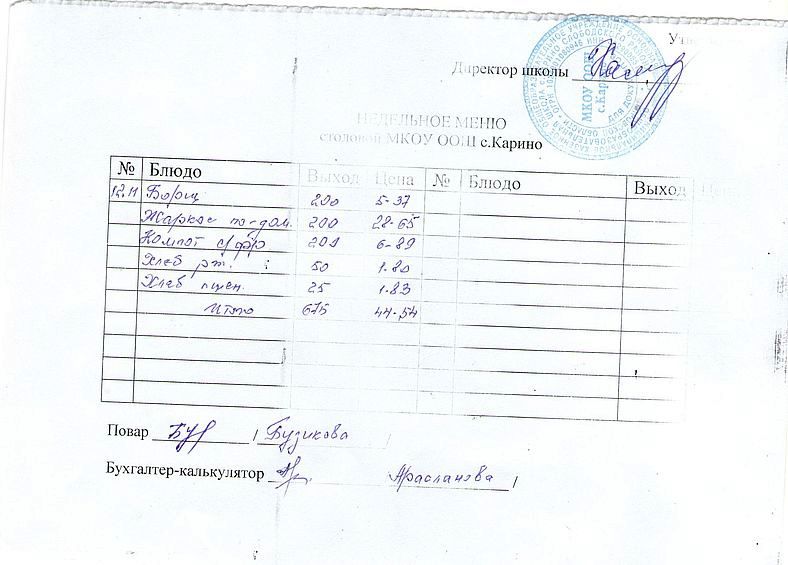 Директор школы
НЕДЕЛЬНОЕ МЕНЮ
столовой МКОУ ООШ с.Карино
№ Блюдо Выход Цена № Блюдо Выход Цена
12.11 Борщ 200 5-37
Жаркое по-дом. 200 28-65
Компот с/фр 200 6-89
Хлеб рж. 50 1.80
Хлеб пшен. 25 1.83
Итого 675 44-54
Повар / Бузикова /
Бухгалтер-калькулятор Арасланова /
МКОУ ООШ
с.Кар